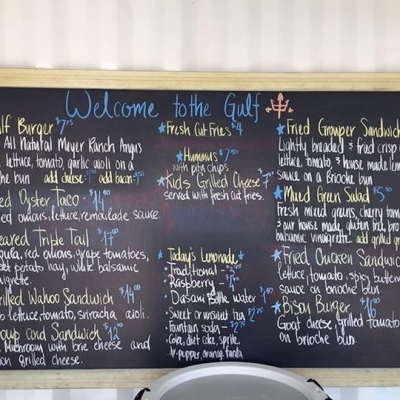 Welcome to the Gulf
Burger
All Natural Meyer Ranch Angus
lettuce, tomato, garlic aioli on a
bun add cheese add bacon
Oyster Taco $14
onions, lettuce, remoulade sauce
Triple Tail $17
red onions, grape tomatoes,
potato hay, white balsamic
Wahoo Sandwich $14
lettuce, tomato, sriracha aioli.
and Sandwich $12
Mushroom with brie cheese and
grilled cheese.
Fresh Cut Fries $4
Hummus $7.50
with pita chips
Kids Grilled Cheese $7
served with fresh cut fries.
Today's Lemonade
Traditional
Raspberry
Dasani Bottle Water
Sweet or unsweet tea
Fountain soda
Coke, diet coke, sprite,
dr. pepper, orange fanta
Fried Grouper Sandwich
Lightly breaded & fried crisp
lettuce, tomato, & house made
sauce on a Brioche bun
Mixed Green Salad $5
Fresh mixed greens, cherry
& our house made, gluten free,
balsamic vinaigrette add grilled
Fried Chicken Sandwich
lettuce, tomato, spicy
sauce on brioche bun.
Bison Burger $16
Goat cheese, grilled tomato
on brioche bun.